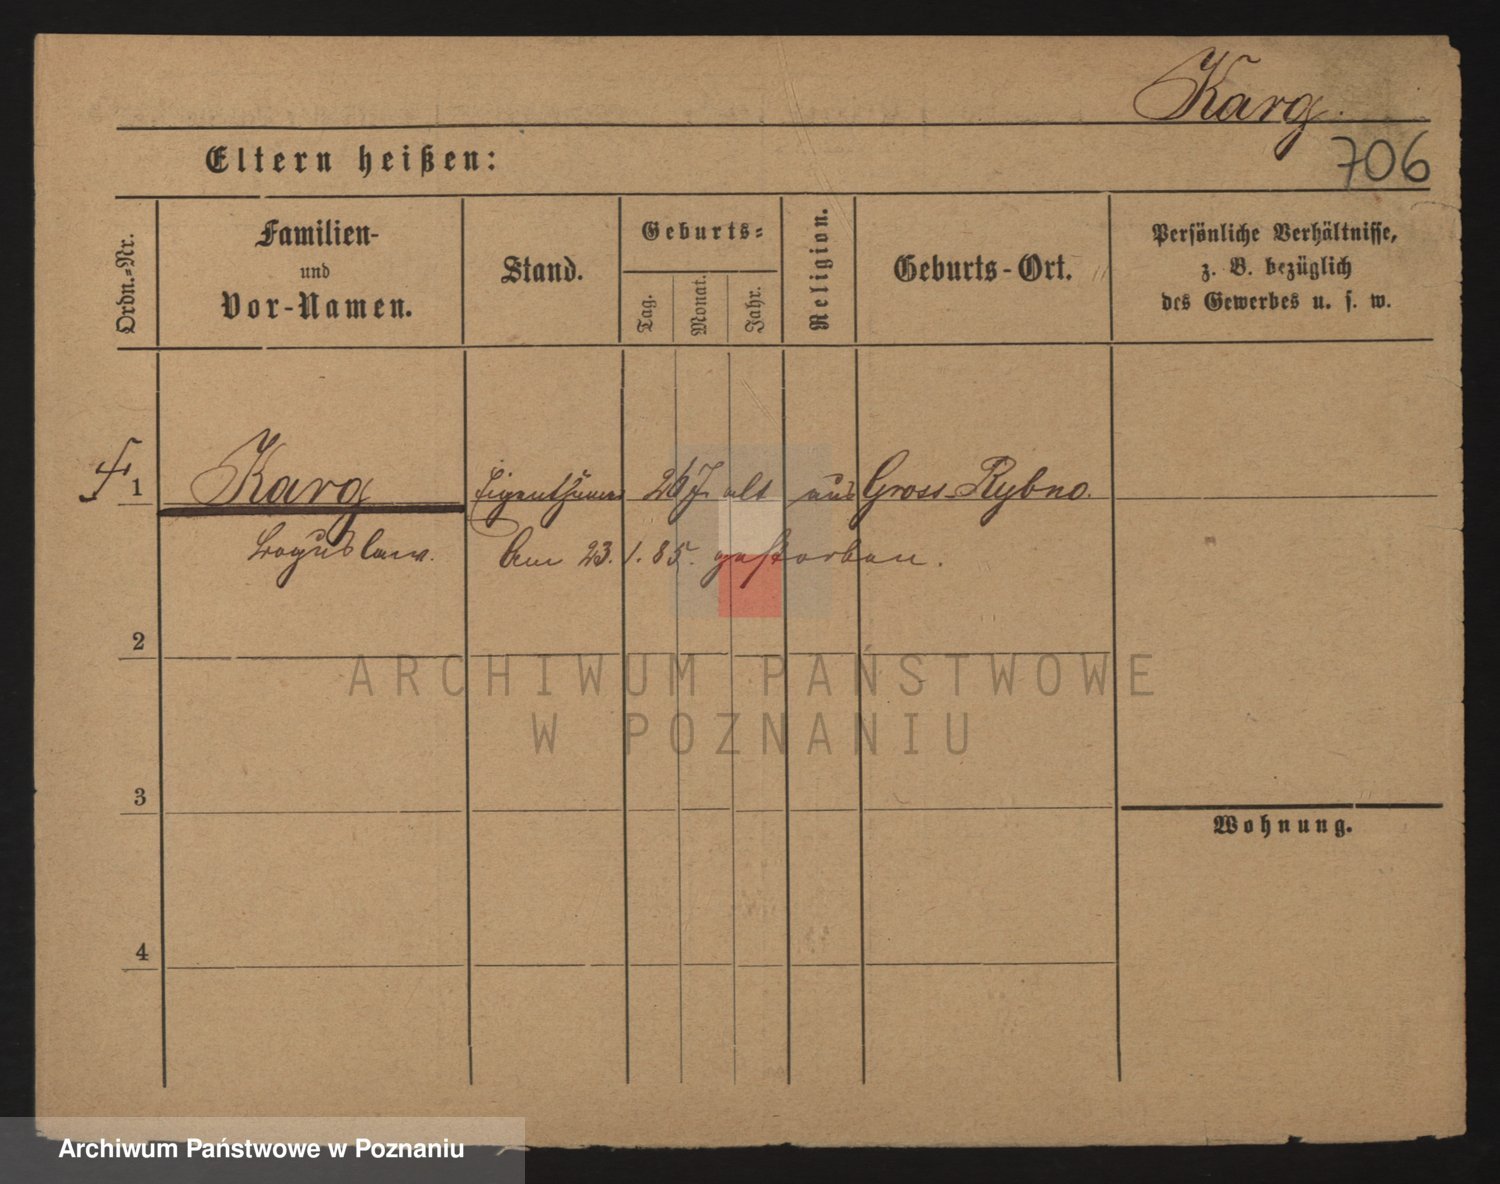 Karg.
706
Eltern heißen:
Ordn.=Nr.
Familien-
und
Vor-Namen.
Stand.
Geburts=
Tag.
Monat.
Jahr.
Religion.
Geburts-Ort.
Persönliche Verhältnisse,
z. B. bezüglich
des Gewerbes u. s. w.
1 Karg Eigenthümer 26 J. alt aus Gross-Rybno.
Boguslaw. Am 23.1.85. gestorben.
2
ARCHIWUM PAŃSTWOWE
W POZNANIU
3
Wohnung.
4
Archiwum Państwowe w Poznaniu